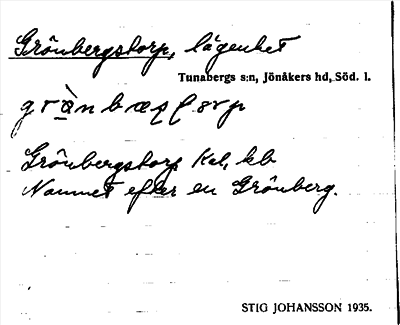 Grönbergstorp, lägenhet
Tunabergs s:n, Jönåkers hd, Söd. l.
Grönbergstorp Kel, kb
Namnet efter en Grönberg.
STIG JOHANSSON 1935.